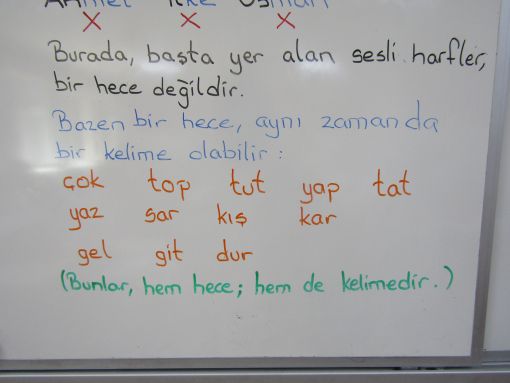 Ahmet İlke Osman
X X X
Burada, başta yer alan sesli harfler,
bir hece değildir.
Bazen bir hece, aynı zamanda
bir kelime olabilir :
çok top tut yap tat
yaz sar kış kar
gel git dur
(Bunlar, hem hece; hem de kelimedir.)